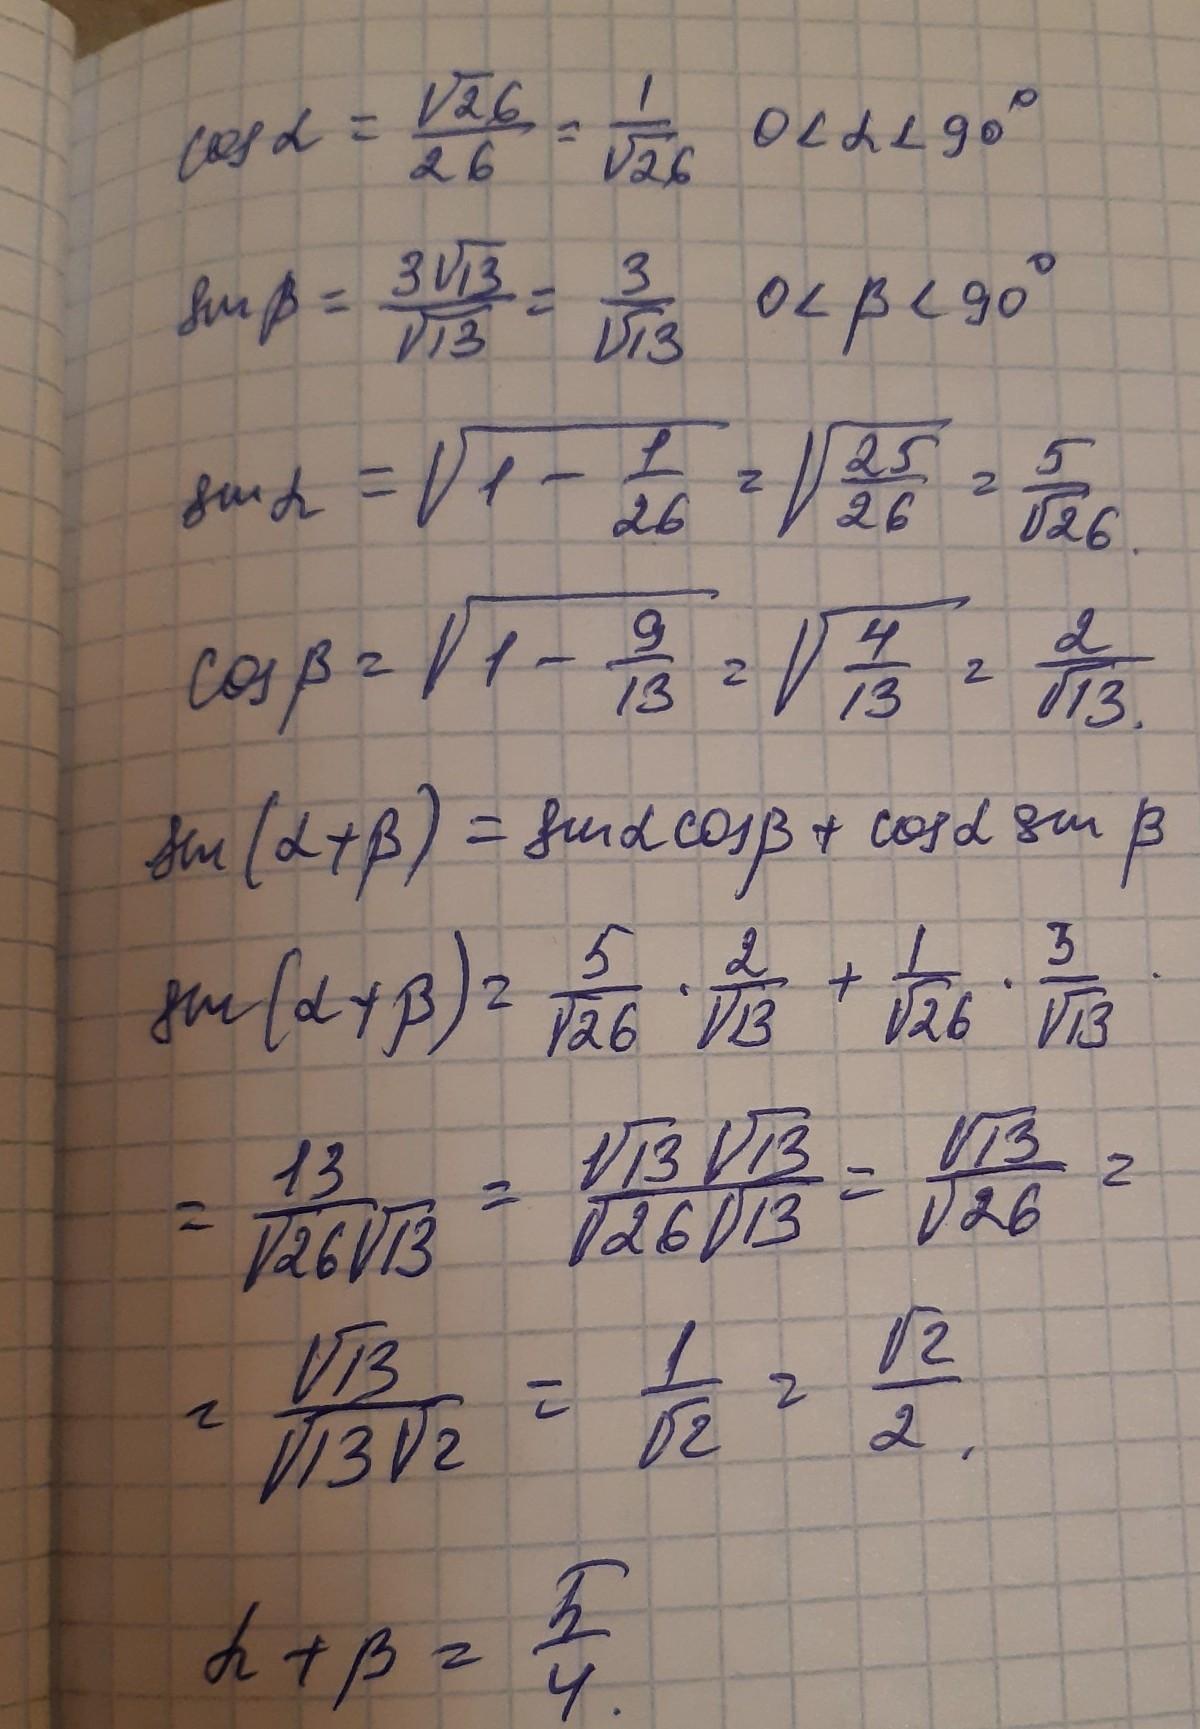 cos α = √26/26 = 1/√26 0 < α < 90°
sin β = 3√13/√13 = 3/√13 0 < β < 90°
sin α = √(1 − 1/26) = √(25/26) = 5/√26.
cos β = √(1 − 9/13) = √(4/13) = 2/√13.
sin(α+β) = sin α cos β + cos α sin β
sin(α+β) = 5/√26 · 2/√13 + 1/√26 · 3/√13 ·
= 13/(√26√13) = (√13 √13)/(√26√13) = √13/√26 =
= √13/(√13√2) = 1/√2 = √2/2.